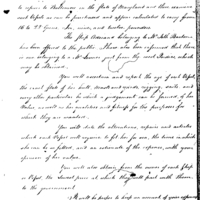 to repair to Baltimore in the State of Maryland and there examine
such Vessels as may be purchased and appear calculated to carry from
16 to 24 Guns, six, nine, and twelve pounders.
The Ship belonging to Mr. John
have been offered to the public. I have also been informed that there
is one belonging to a Mr. just from the
may be obtained.
You will examine and report the age of each Vessel,
the exact state of her hull, masts and yards, rigging, sails and
any other particular by which a judgement can be formed, of her
Value, as well as her qualities and fitness for the purposes for
which they are wanted.
You will state the alterations, repairs and articles
which each Vessel will require to fit her for sea, the time in which
she can be so fitted, and an estimate of the expence, with your
opinion of her value.
You will also obtain, from the owners of each Ship
or Vessel the lowest price at which they will part with them
to the government
It will be proper to keep an account of your expences